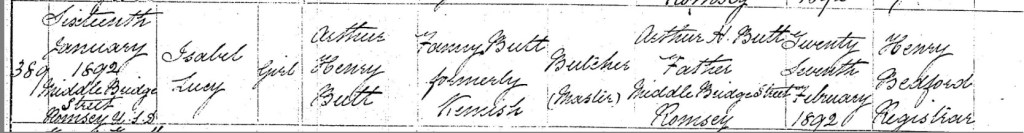 389
Sixteenth
January
1892
Middle Bridge
Street
Romsey U.S.D
Isabel
Lucy
Girl
Arthur
Henry
Butt
Fanny Butt
formerly
Kemish
Butcher
(Master)
Arthur H. Butt
Father
Middle Bridge Street
Romsey
Twenty
Seventh
February
1892
Henry
Bedford
Registrar